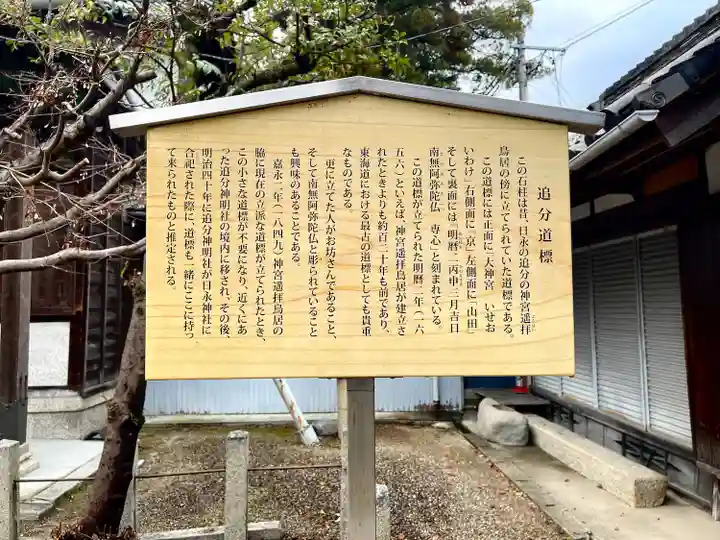 追分道標
この石柱は昔、日永の追分の神宮遥拝
鳥居の傍に立てられていた道標である。
この道標には正面に「大神宮 いせお
いわけ」右側面に「京」左側面に「山田」
そして裏面には「明暦二丙申三月吉日
南無阿弥陀仏 専心」と刻まれている。
この道標が立てられた明暦二年（一六
五六）といえば、神宮遥拝鳥居が建立さ
れたときよりも約百二十年も前であり、
東海道における最古の道標としても貴重
なものである。
更に立てた人がお坊さんであること、
そして南無阿弥陀仏と彫られていること
も興味のあることである。
嘉永二年（一八四九）神宮遥拝鳥居の
脇に現在の立派な道標が立てられたとき、
この小さな道標が不要になり、近くにあ
った追分神明社の境内に移され、その後、
明治四十年に追分神明社が日永神社に
合祀された際に、道標も一緒にここに持っ
て来られたものと推定される。